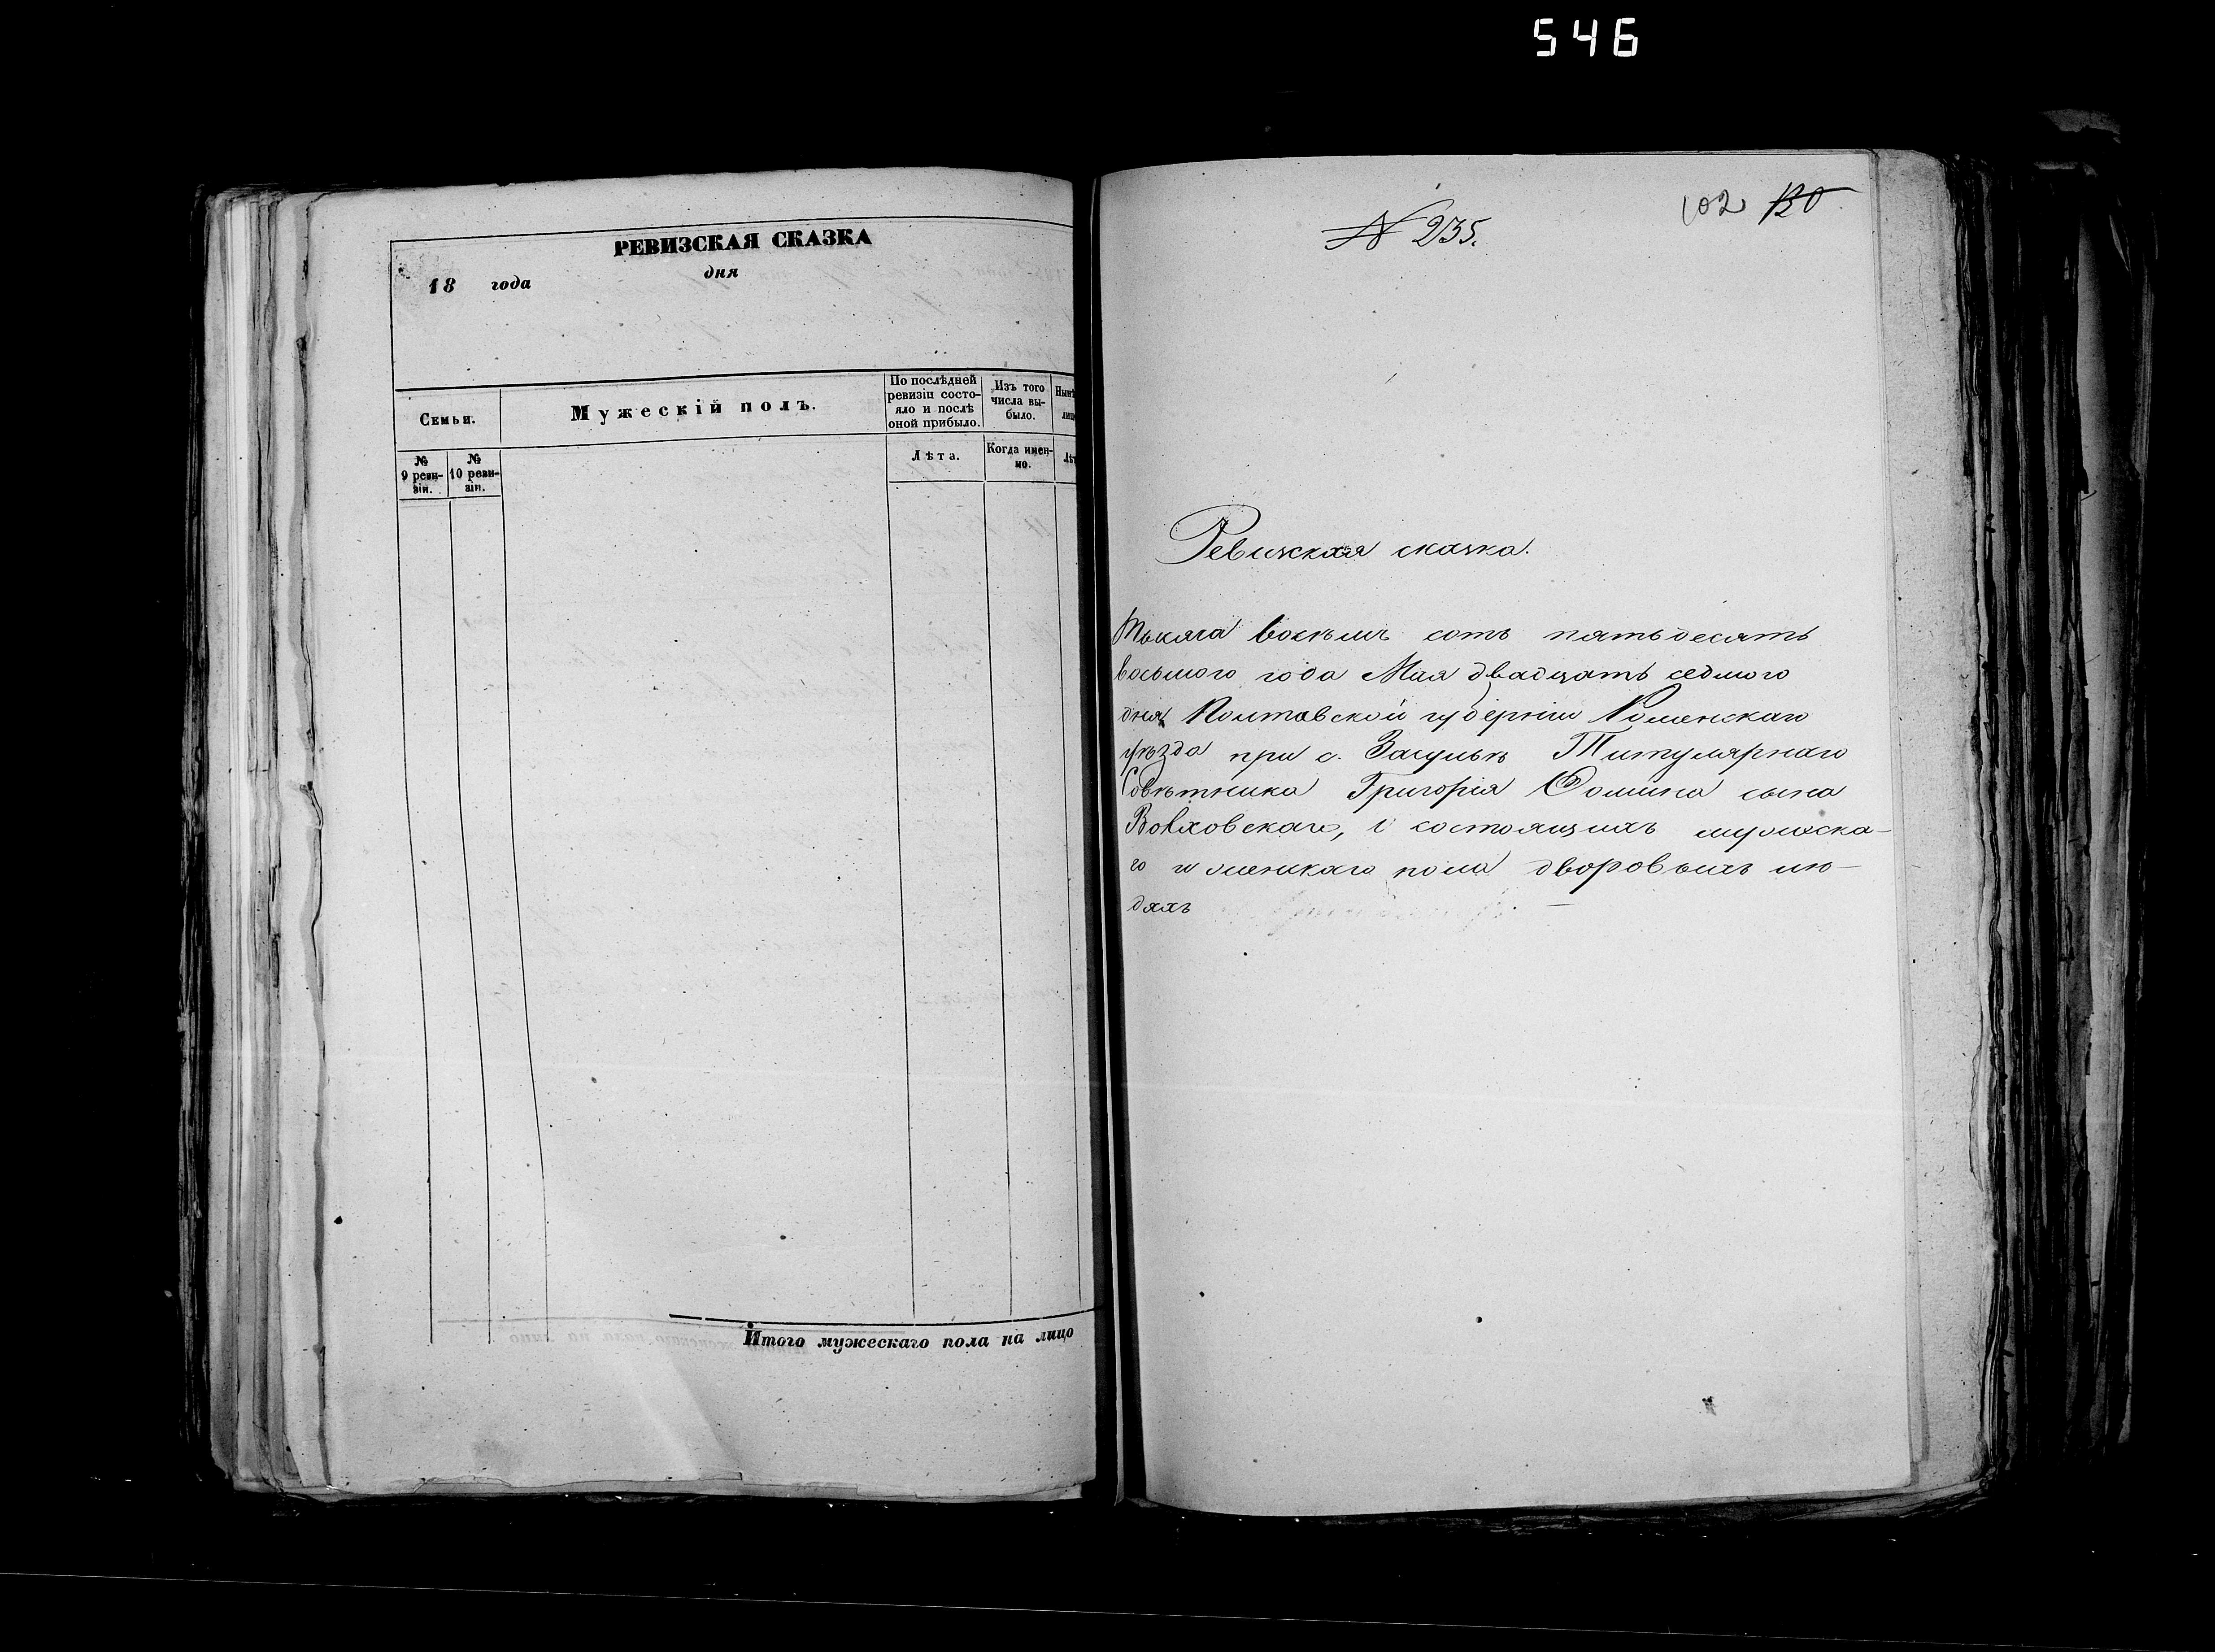 546
РЕВИЗСКАЯ СКАЗКА
18 года дня
Семьи.
Мужескій полъ.
По послѣдней ревизіи состо-
яло и послѣ оной прибыло.
Изъ того числа вы-
было.
№ 9 реви-
зіи.
№ 10 реви-
зіи.
Лѣта.
Когда имен-
но.
Итого мужескаго пола на лицо
102 120
№ 235.
Ревизская сказка.
Тысяча восѣмъ сотъ пятьдесятъ
восьмого года Мая двадцать седмого
дня Полтавской губерніи Роменскаго
уѣзда при с. Засульѣ Титулярнаго
Совѣтника Григорія Фомина сына
Волховскаго, о состоящихъ мужеска-
го и женскаго пола дворовыхъ лю-
дяхъ